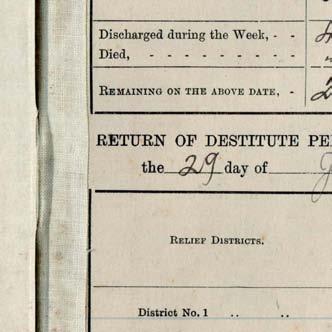 Discharged during the Week, - -
Died, - - - - - - - -
REMAINING ON THE ABOVE DATE, -
RETURN OF DESTITUTE PE
the 29 day of
RELIEF DISTRICTS.
District No. 1 .. ..